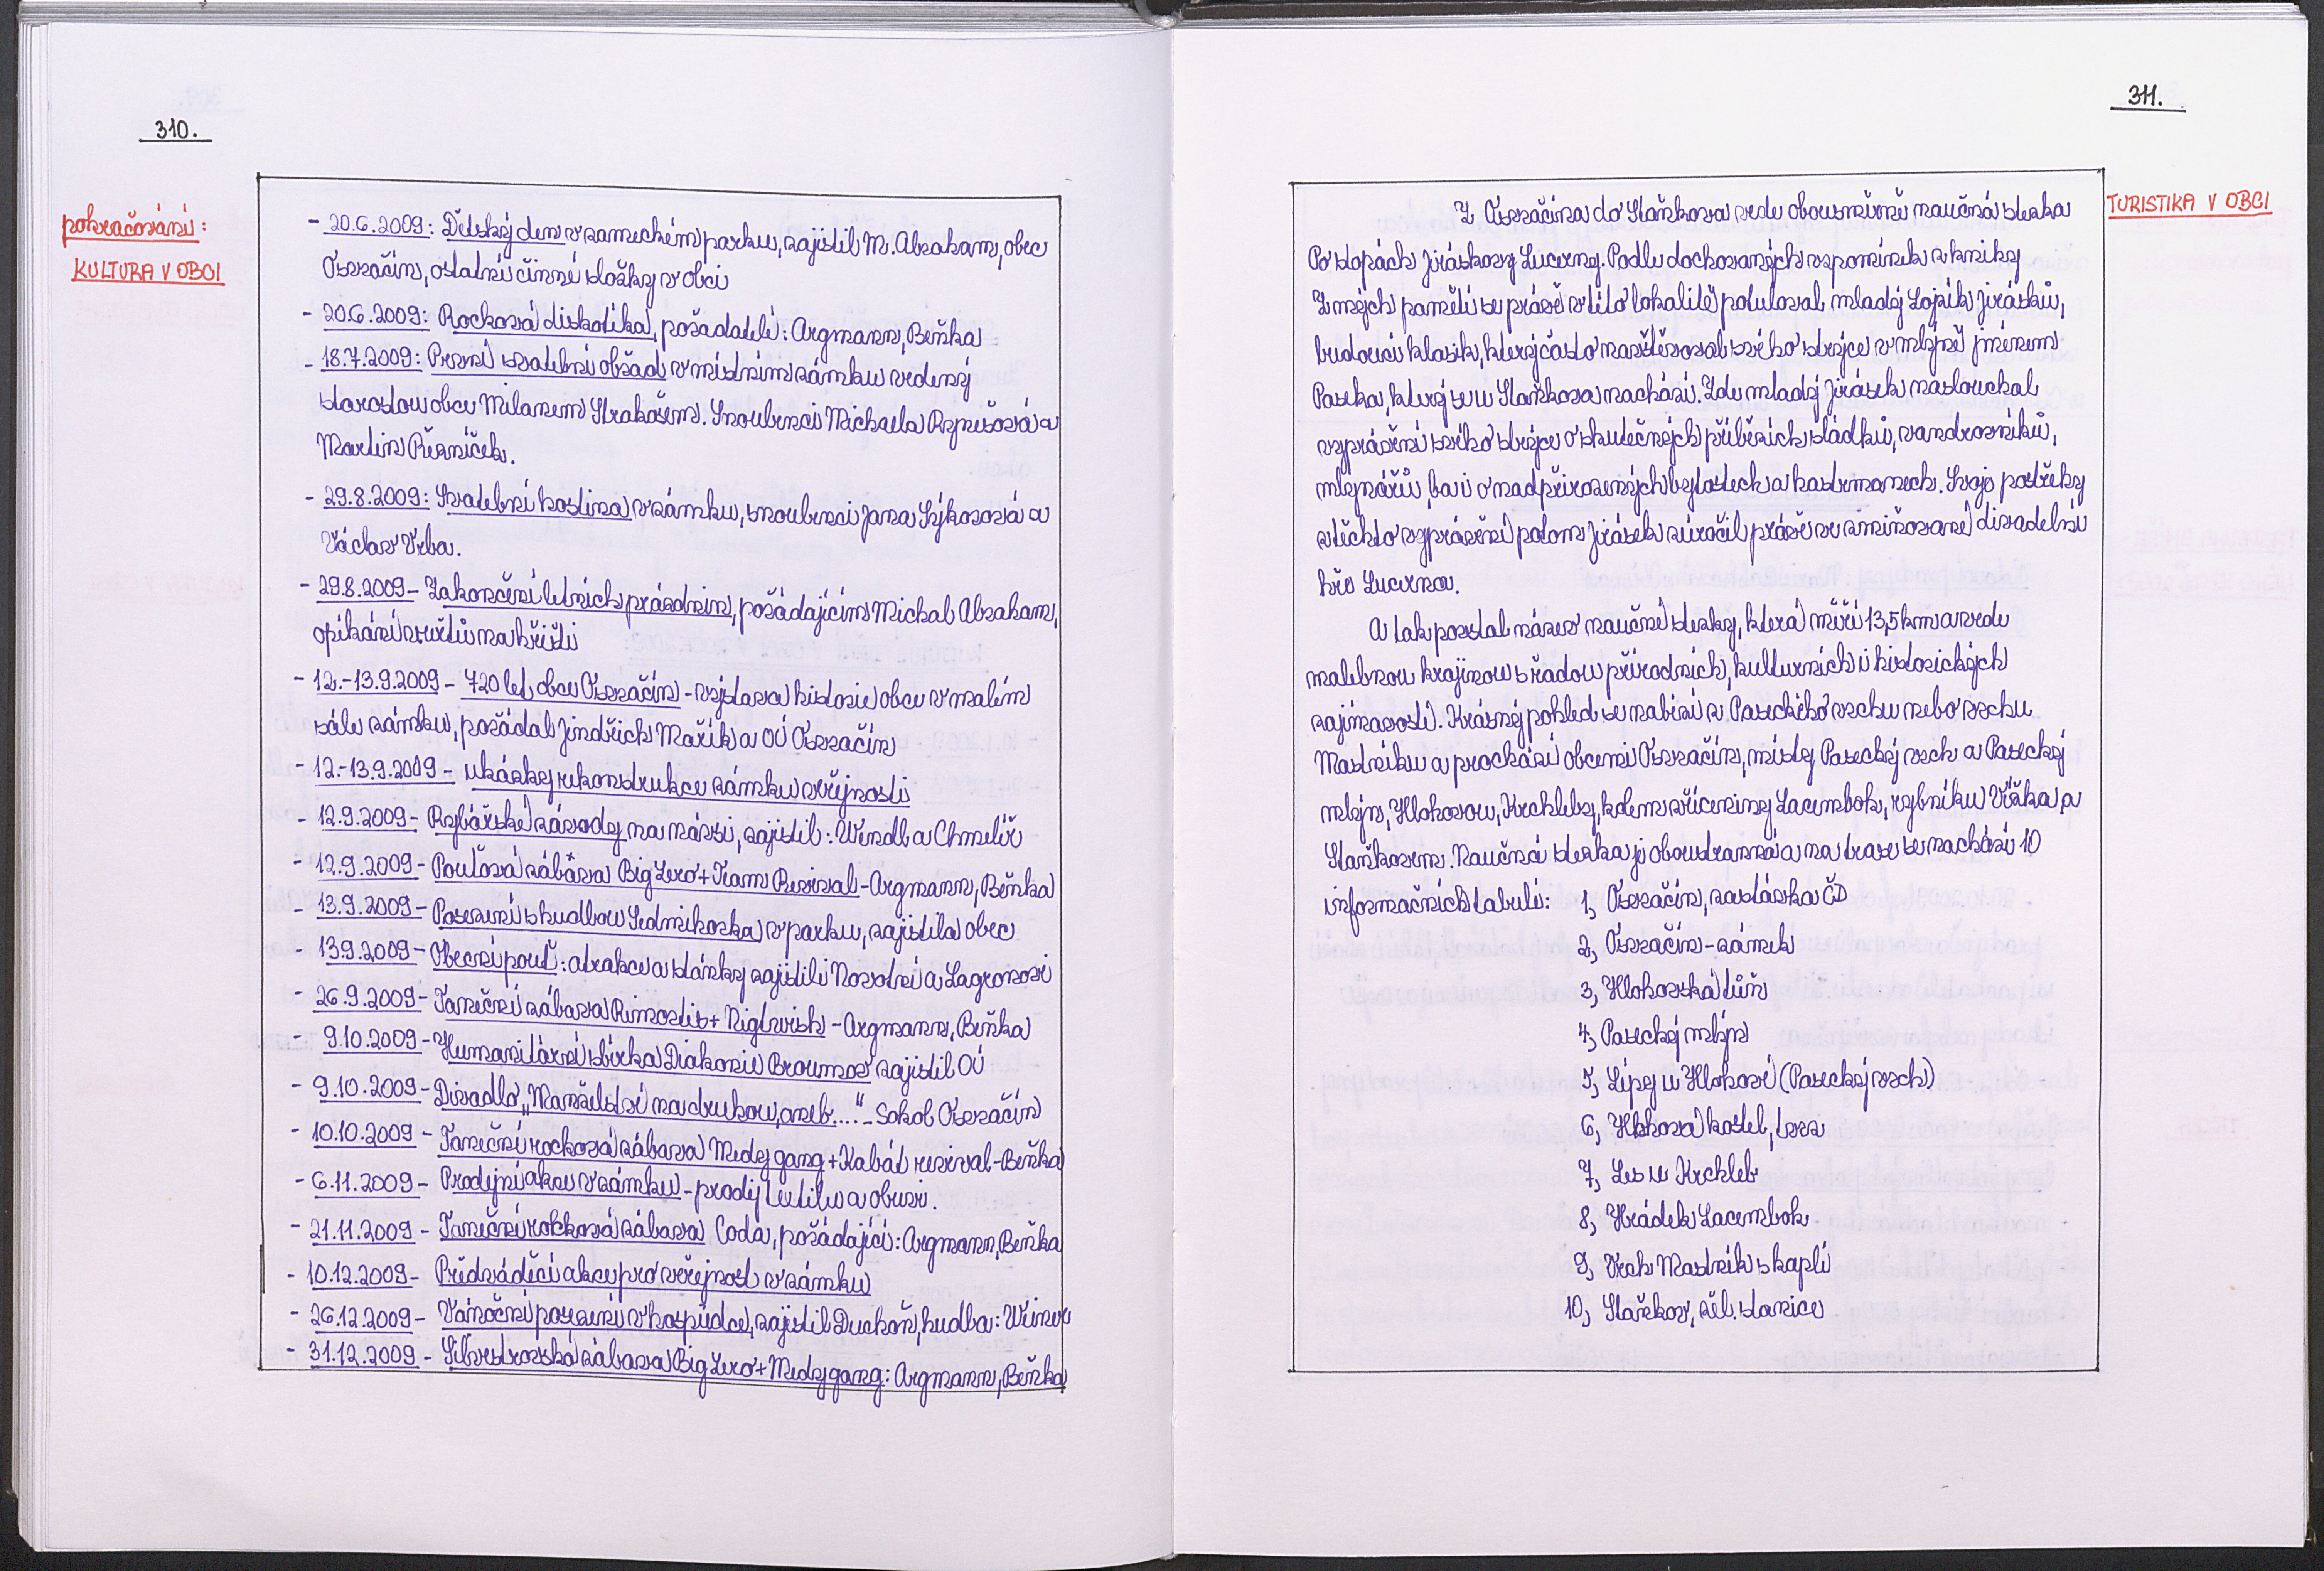 310.
pokračování:
KULTURA V OBCI
- 20.6.2009: Dětský den v zámeckém parku, zajistil M. Abraham, obec
Osvračín, ostatní činné složky v obci
- 20.6.2009: Rocková diskotéka, pořadatelé: Argmann, Beňka
- 18.7.2009: První svatební obřad v místním zámku vedený
starostou obce Milanem Strakošem. Snoubenci Michaela
Martin Peřníček.
- 29.8.2009: Svatební hostina v zámku, snoubenci Jana Sýkorová a
Václav Vrba.
- 29.8.2009 - Zakončení letních prázdnin, pořádajícím Michal Abraham,
opékání vuřtů na hřišti
- 12.-13.9.2009 - 720 let obce Osvračín - výstava historie obce v malém
sále zámku, pořádal Jindřich Mařík a OÚ Osvračín
- 12.-13.9.2009 - ukázky rekonstrukce zámku veřejnosti
- 12.9.2009 - Rybářské závody na návsi, zajistil: Windl a Chmelíř
- 12.9.2009 - Pouťová zábava Big Zero + Team Revival - Argmann, Beňka
- 13.9.2009 - Posezení s hudbou Sedmikráska v parku, zajistila obec
13.9.2009 - Obecní pouť: atrakce a stánky zajistili Novotní a Lagronovi
- 26.9.2009 - Taneční zábava Rimortis + Nightwish - Argmann, Beňka
- 9.10.2009 - Humanitární sbírka Diakonie Broumov zajistil OÚ
- 9.10.2009 - Divadlo „Manželství na druhou, aneb..." - Sokol Osvračín
- 10.10.2009 - Taneční rocková zábava Medvy gang + Kabát revival - Beňka
- 6.11.2009 - Prodejní akce v zámku - prodej textilu a obuvi.
- 21.11.2009 - Taneční rocková zábava Coda, pořádající: Argmann, Beňka
- 10.12.2009 - Předváděcí akce pro veřejnost v zámku
- 26.12.2009 - Vánoční posezení v hospůdce, zajistil Duchoň, hudba:
- 31.12.2009 - Silvestrovská zábava Big Zero + Medvy gang: Argmann, Beňka
311.
TURISTIKA V OBCI
Z Osvračína do Staňkova vede obousměrně naučná stezka
Po stopách Jiráskovy Lucerny. Podle dochovaných vzpomínek z knihy
Z mých pamětí se právě v této lokalitě potuloval mladý Lojzík Jirásků,
budoucí klasik, který často navštěvoval svého strýce v mlýně jménem
Paseka, který se u Staňkova nachází. Zde mladý Jirásek naslouchal
vyprávění svého strýce o skutečných příbězích sládků, vandrovníků,
mlynářů, ba i o nadpřirozených bytostech a hastrmanech. Svoje postřehy
z těchto vyprávění potom Jirásek zúročil právě ve zmiňované divadelní
hře Lucerna.
A tak povstal název naučné stezky, která měří 13,5 km a vede
malebnou krajinou s řadou přírodních, kulturních i historických
zajímavostí. Krásný pohled se nabízí z Paseckého vrchu nebo vrchu
Mastníku a prochází obcemi Osvračín, místy Pasecký vrch a Pasecký
mlýn, Hlohovou, Krchleby, kolem zříceniny Lacembok, rybníku Vížka a
Staňkovem. Naučná stezka je oboustranná a na trase se nachází 10
informačních tabulí: 1, Osvračín, zastávka ČD
2, Osvračín - zámek
3, Hlohovská tůň
4, Pasecký mlýn
5, Lípy u Hlohové (Pasecký vrch)
6, Hlohová kostel, tvrz
7, Les u Krchleb
8, Hrádek Lacembok
9, Vrch Mastník s kaplí
10, Staňkov, žel. stanice